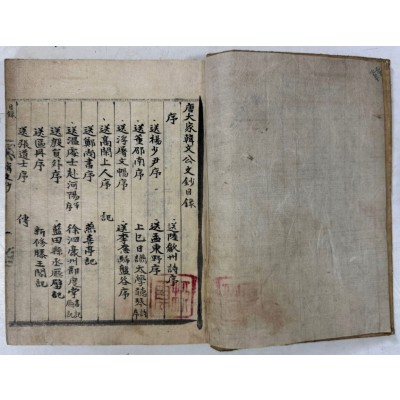 唐大家韓文公文鈔目錄
序 送陸歙州詩序
送楊少尹序 送孟東野序
送董邵南序 上巳日讌太學聽琴詩序
送浮屠文暢序 送李愿歸盤谷序
送高閑上人序 記
送鄭尚書序 燕喜亭記
送溫處士赴河陽序 徐泗濠州節度掌書記廳記
送殷員外序 藍田縣丞廳壁記
送區冊序 新修滕王閣記
送張道士序 傳
目錄